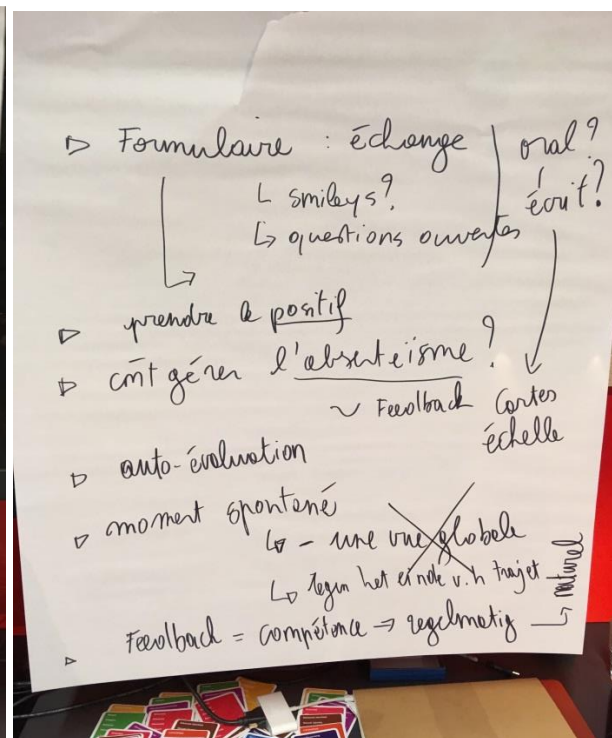 ▷ Formulaire : échange | oral?
↳ smileys? écrit?
↳ questions ouvertes
▷ prendre le positif
▷ cmt gérer l'absenteïsme?
~ Feedback Cartes
échelle
▷ auto-évaluation
▷ moment spontané
↳ - une vue globale
↳ Tegen het einde v.h trajet
▷ Feedback = compétence → regelmatig → naturel